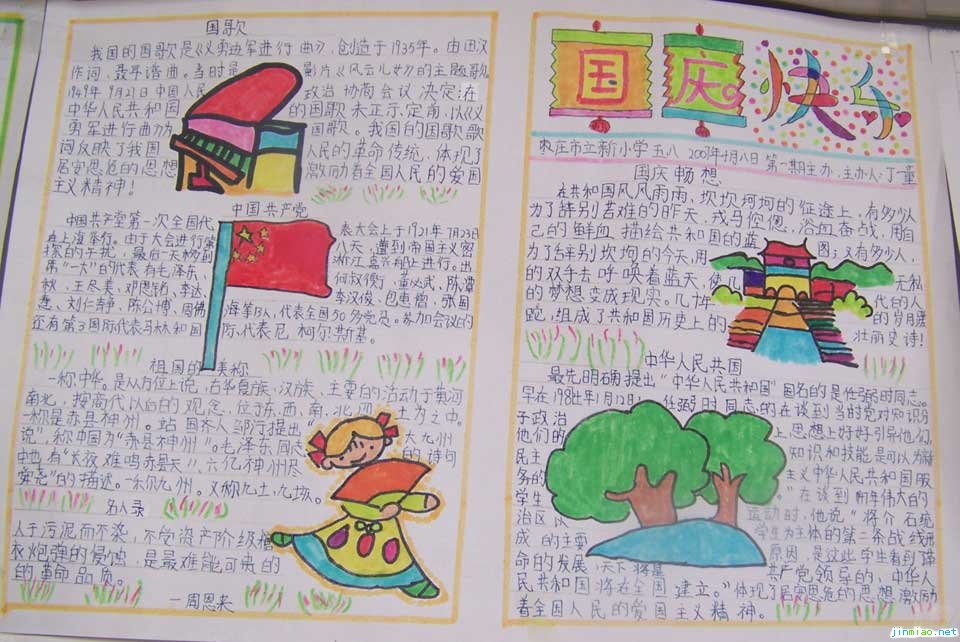 国歌
我国的国歌是《义勇进军进行曲》,创造于1935年。由田汉
作词,聂耳谱曲。当时是 影片《风云儿女》的主题歌
1949年9月21日中国人民 政治协商会议决定:在
中华人民共和国 的国歌未正示定前,以《义
勇军进行曲为 国歌。我国的国歌歌
词反映了我国 人民的革命传统,体现了
居安思危的思想 激励着全国人民的爱国
主义精神!
中国共产党
中国共产党第一次全国代 表大会上于1921年7月23日
在上海举行。由于大会进行 八天,遭到帝国主义密
探的干扰,最后一天移到 浙江嘉兴船上进行。出
席"一大"的代表有毛泽东、 何叔衡、董必武、陈潭
秋、王尽美、邓恩铭、李达、 李汉俊、包惠僧、张国
焘、刘仁静、陈公博、周佛 海等13人,代表全国50多党员。参加会议的
还有第3国际代表马林和国 际代表尼柯尔斯基。
祖国的美称
一称中华。是从方位上说,古华夏族、汉族,主要的活动于黄河
南北,按高代以白的观念,位于东、西、南、北 之中。
一称是赤县神州。 大九州
说",称中国为"赤县神州"。毛泽东同 的诗句
中也有"长夜难鸣赤县天"、六亿神州尽
舜尧"的描述。 九州。又称九土、九场。
名人录
人于污泥而不染,不受资产阶级糖
衣炮弹的侵蚀,是最难能可贵的
的革命品质。
—周恩来
国庆快乐
枣庄市立新小学 五八 第一期主办,主办人:丁一董
国庆畅想
在共和国风风雨雨、坎坎坷坷的征途上,有多少人
为了辞别苦难的昨天,戎马倥偬,浴血奋战,用自
己的鲜血,描绘共和国的蓝 图;又有多少人,
为了辞别坎坷的今天,用 无私
的双手去呼唤着蓝天, 代的人
的梦想变成现实。几十年 的岁月蹉
跎,组成了共和国历史上的 壮丽史诗!
中华人民共和国
最先明确提出"中华人民共和国"国名的是任弼时同志。
早在 任弼时同志的在谈到当时党对知识分
子政治 上,思想上好好引导他们,
他们的 知识和技能是可以为新
民主 主义中华人民共和国服
务的 。"在谈到 年伟大的
学生 运动时,他说"将介石统
治区以 学生为主体的第二条战线形
成的主要 原因,是这些学生看到了在
命的发展,天下将是 共产党领导的,中华人
民共和国将在全国建立。"体现了居安思危的思想,激励
着全国人民的爱国主义精神。
jinmiao.net